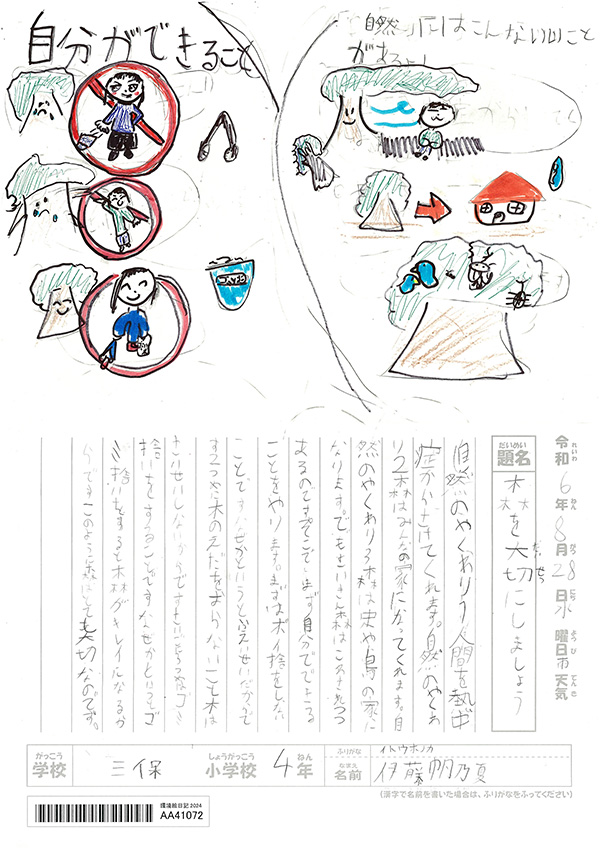 自分ができること
自然にはこんないいこと
があるよ!
ゴミ拾い
令和6年8月28日水曜日 天気
れいわ ねん がつ にち ようび てんき
だいめい
題名
森を大切にしましょう
たいせつ
自然のやくわり1人間を熱中
症からさけてくれます。自然のやくわ
り2森はみんなの家になってくれます。自
然のやくわり3森は虫や鳥の家に
なります。でもさいきん森はこわされつつ
あるのです。そこでまず自分でできる
ことをやります。まずはポイ捨をしない
ことです。なぜかというと
2つ木のえだをおらないこと木は
さいせいしないからです。さいごに
拾いをすることです。なぜかというとゴ
ミ拾いをすると森がキレイになるか
らです。このように森はとても大切なのです。
がっこう
学校
三保
しょうがっこう
小学校
4年
ねん
ふりがな
イトウホノカ
なまえ
名前
伊藤帆乃夏
(漢字で名前を書いた場合は、ふりがなをふってください)
環境絵日記2024
AA41072